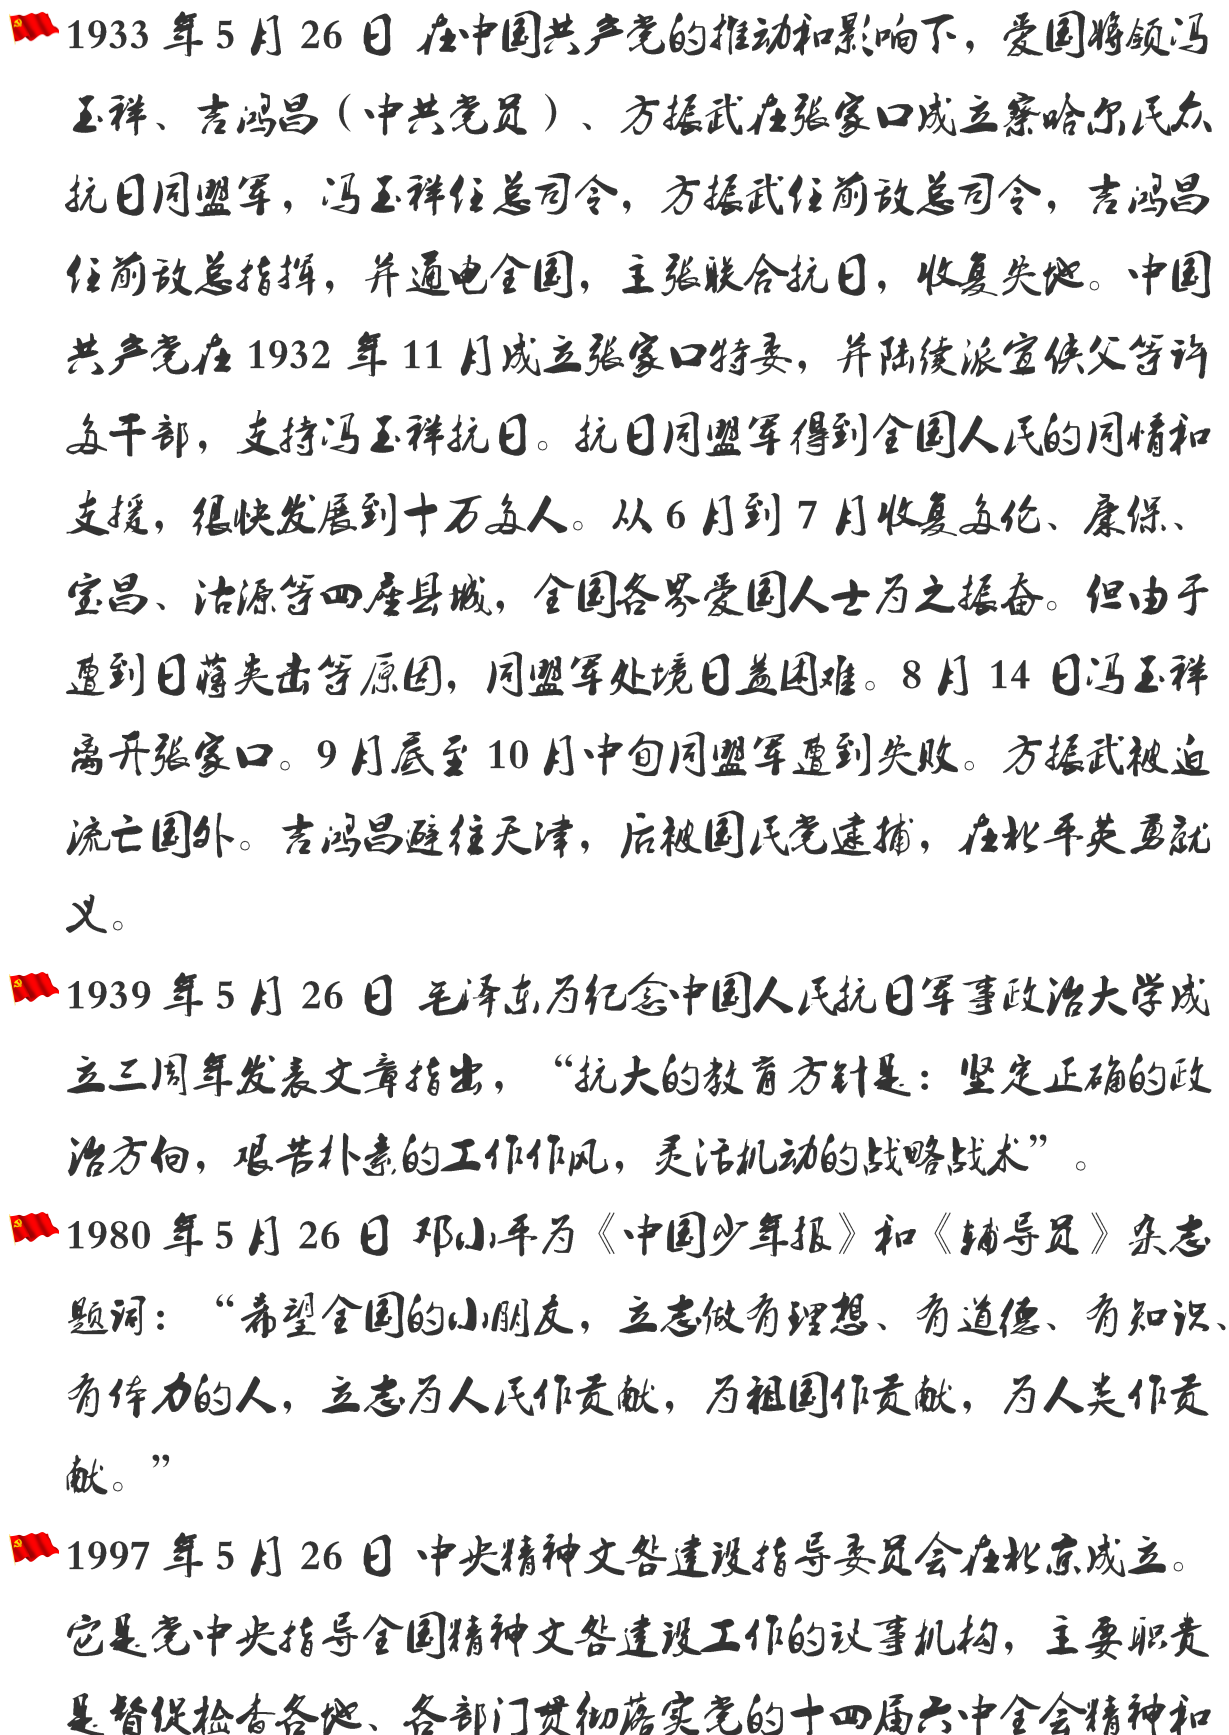 1933 年 5 月 26 日 在中国共产党的推动和影响下，爱国将领冯
玉祥、吉鸿昌（中共党员）、方振武在张家口成立察哈尔民众
抗日同盟军，冯玉祥任总司令，方振武任前敌总司令，吉鸿昌
任前敌总指挥，并通电全国，主张联合抗日，收复失地。中国
共产党在 1932 年 11 月成立张家口特委，并陆续派宣侠父等许
多干部，支持冯玉祥抗日。抗日同盟军得到全国人民的同情和
支援，很快发展到十万多人。从 6 月到 7 月收复多伦、康保、
宝昌、沽源等四座县城，全国各界爱国人士为之振奋。但由于
遭到日蒋夹击等原因，同盟军处境日益困难。8 月 14 日冯玉祥
离开张家口。9 月底至 10 月中旬同盟军遭到失败。方振武被迫
流亡国外。吉鸿昌避往天津，后被国民党逮捕，在北平英勇就
义。
1939 年 5 月 26 日 毛泽东为纪念中国人民抗日军事政治大学成
立三周年发表文章指出，“抗大的教育方针是：坚定正确的政
治方向，艰苦朴素的工作作风，灵活机动的战略战术”。
1980 年 5 月 26 日 邓小平为《中国少年报》和《辅导员》杂志
题词：“希望全国的小朋友，立志做有理想、有道德、有知识、
有体力的人，立志为人民作贡献，为祖国作贡献，为人类作贡
献。”
1997 年 5 月 26 日 中央精神文明建设指导委员会在北京成立。
它是党中央指导全国精神文明建设工作的议事机构，主要职责
是督促检查各地、各部门贯彻落实党的十四届六中全会精神和